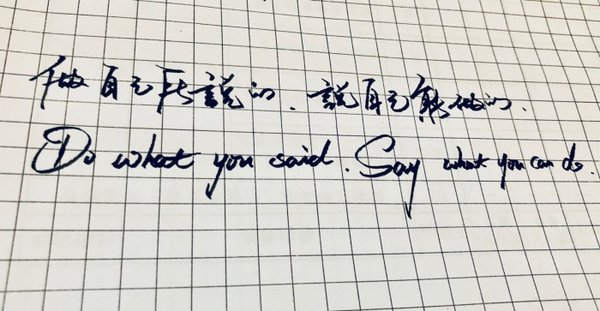 做自己所說的.說自己能做的.
Do what you said. Say what you can do.